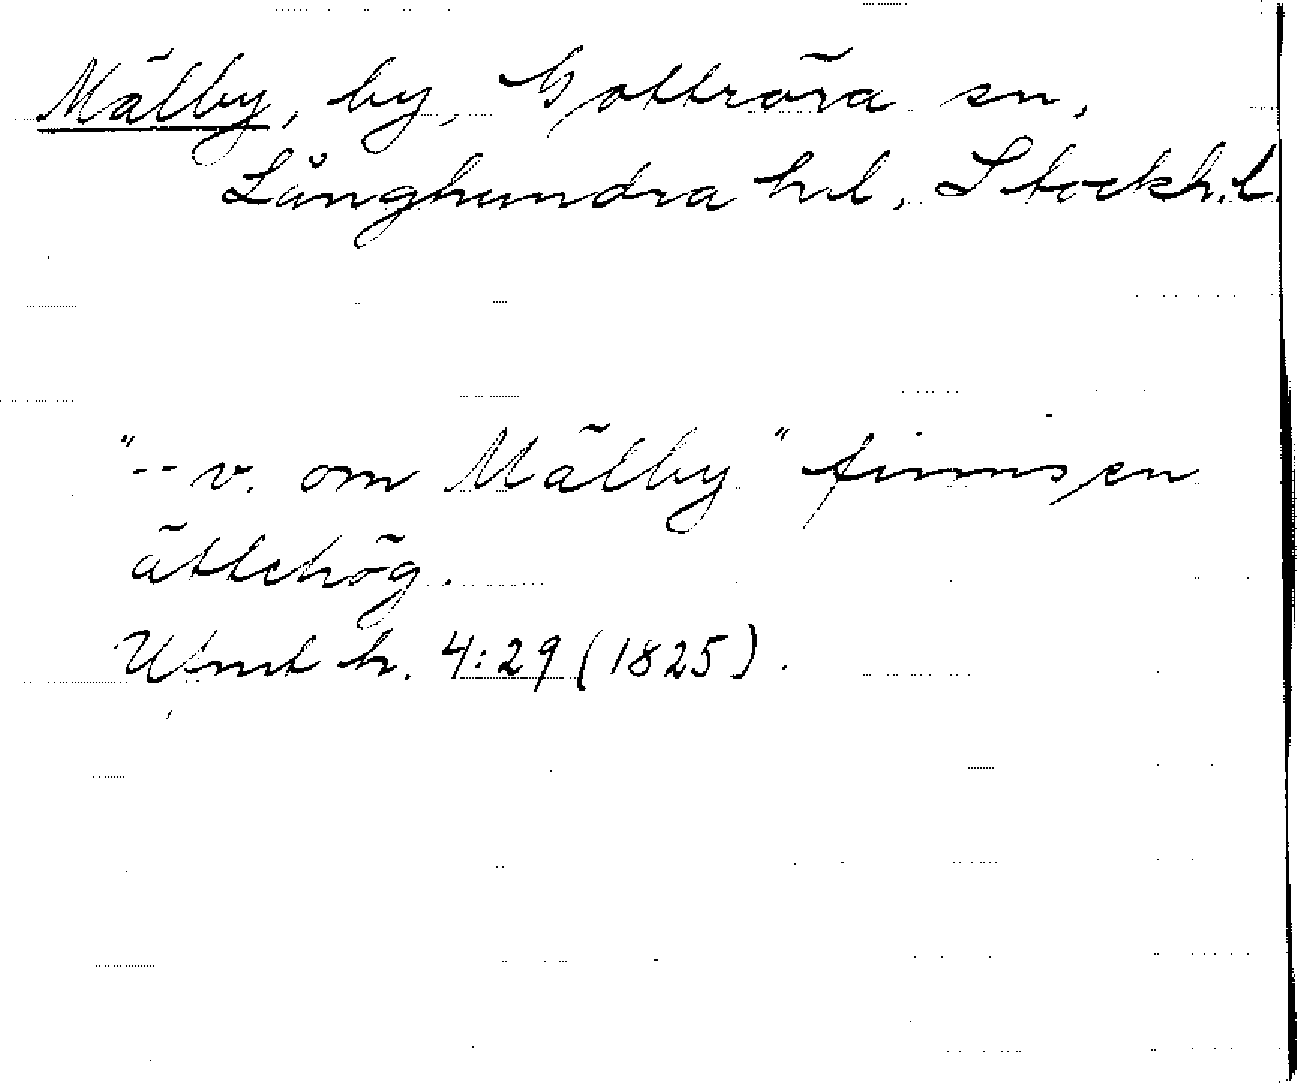 Mälby, by, Gottröra sn,
Långhundra hd, Stockh. l.
"-- v. om Mälby" finns en
ättehög.
Uhnd h. 4:29 (1825).